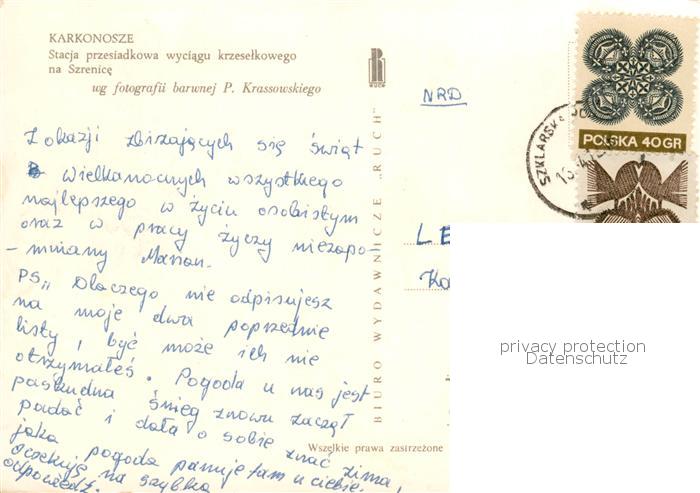 KARKONOSZE
Stacja przesiadkowa wyciągu krzesełkowego
na Szrenicę
wg fotografii barwnej P. Krassowskiego
RUCH
NRD
POLSKA 40 GR
SZKLARSKA
Z okazji zbiżających się świąt
wielkanocnych wszystkiego
najlepszego w życiu osobistym
oraz w pracy życzy niezapo-
-mniany Marian.
PS,, Dlaczego nie odpisujesz
na moje dwa poprzednie
listy, być może ich nie
otrzymałeś. Pogoda u nas jest
paskudna śnieg znowu zaczął
padać i dała o sobie znać zima,
jaka pogoda panuje tam u ciebie.
Oczekuję na szybką
odpowiedź.
BIURO WYDAWNICZE „RUCH"
LE
Ka
privacy protection
Datenschutz
Wszelkie prawa zastrzeżone